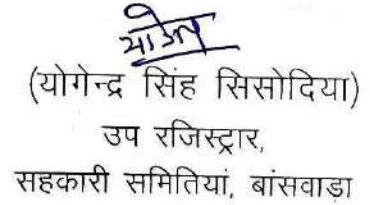 (योगेन्द्र सिंह सिसोदिया)
उप रजिस्ट्रार,
सहकारी समितियां, बांसवाडा